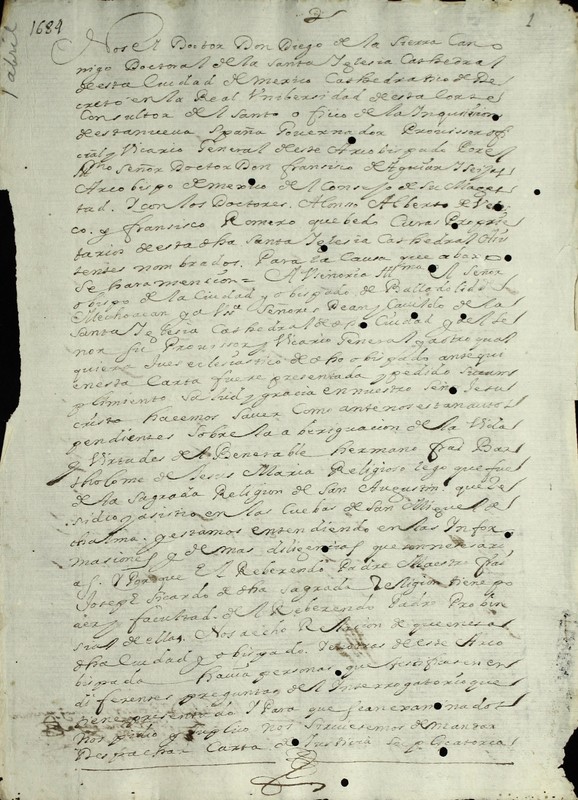 1684
1
abril
Nos El Doctor Don Diego de la Sierra Cano
nigo Doctoral de la Santa Iglesia Cathedral
desta Ciudad de mexico Cathedratico de De
creto en la Real Vnibersidad de esta Corte
Consultor del Santo officio de la Inquisicion
de esta nueva España Gouernador Prouissor offi
cial y Vicario General de este Arcobispado Por el
Illmo Señor Doctor Don francisco de Aguiar y Seijas
Arcobispo de mexico del Consejo de Su Mages
tad. Y con los Doctores. Alonso Alberto de Velas
co. y francisco Romero quebedo Curas Proprie
tarios de esta dha Santa Iglesia Cathedral Asis
tentes nombrados. Para la Causa que abaxo
Se hara mencion = Al Señoria Illma el Señor
obispo de la Ciudad y obispado de Balladolid
Mechoacan y a los Señores Dean y Cauildo de la
Santa Iglesia Cathedral de dha Ciudad y al Se
ñor Su Prouissor y Vicario General y a otro qual
quiera Jues eclesiastico de dho obispado ante qui
en esta Carta fuere presentada y pedido Su cum
plimiento Salud y gracia en nuestro Señor Jesu
cristo hacemos Sauer Como ante nos estan autos
pendientes Sobre la aberiguacion de la Vida
y Virtudes del Benerable hermano fray Bar
tholome de Jesus Maria Religioso lego que fue
de la Sagrada Religion de San Augustin que Re
sidio y asistio en las Cuebas de San Miguel de
chalma. y estamos entendiendo en las Infor
masiones y demas diligencias que son nesesari
as. Y Porque El Reberendo Padre Maestro fray
Joseph Sicardo de dha Sagrada Religion tiene po
der y facultad. del Reberendo Padre Probin
sial de ella. Nos a echo Relacion de que en esa
dha Ciudad y obispado. y en otras de este Arco
bispado hauia personas que testifiquen en
diferentes preguntas del Interrogatorio que
tiene presentado Y Para que Sean examinados
Nos pidio y Suplico nos Siruiesemos de mandar
Despachar Carta de Justicia Requisitoria